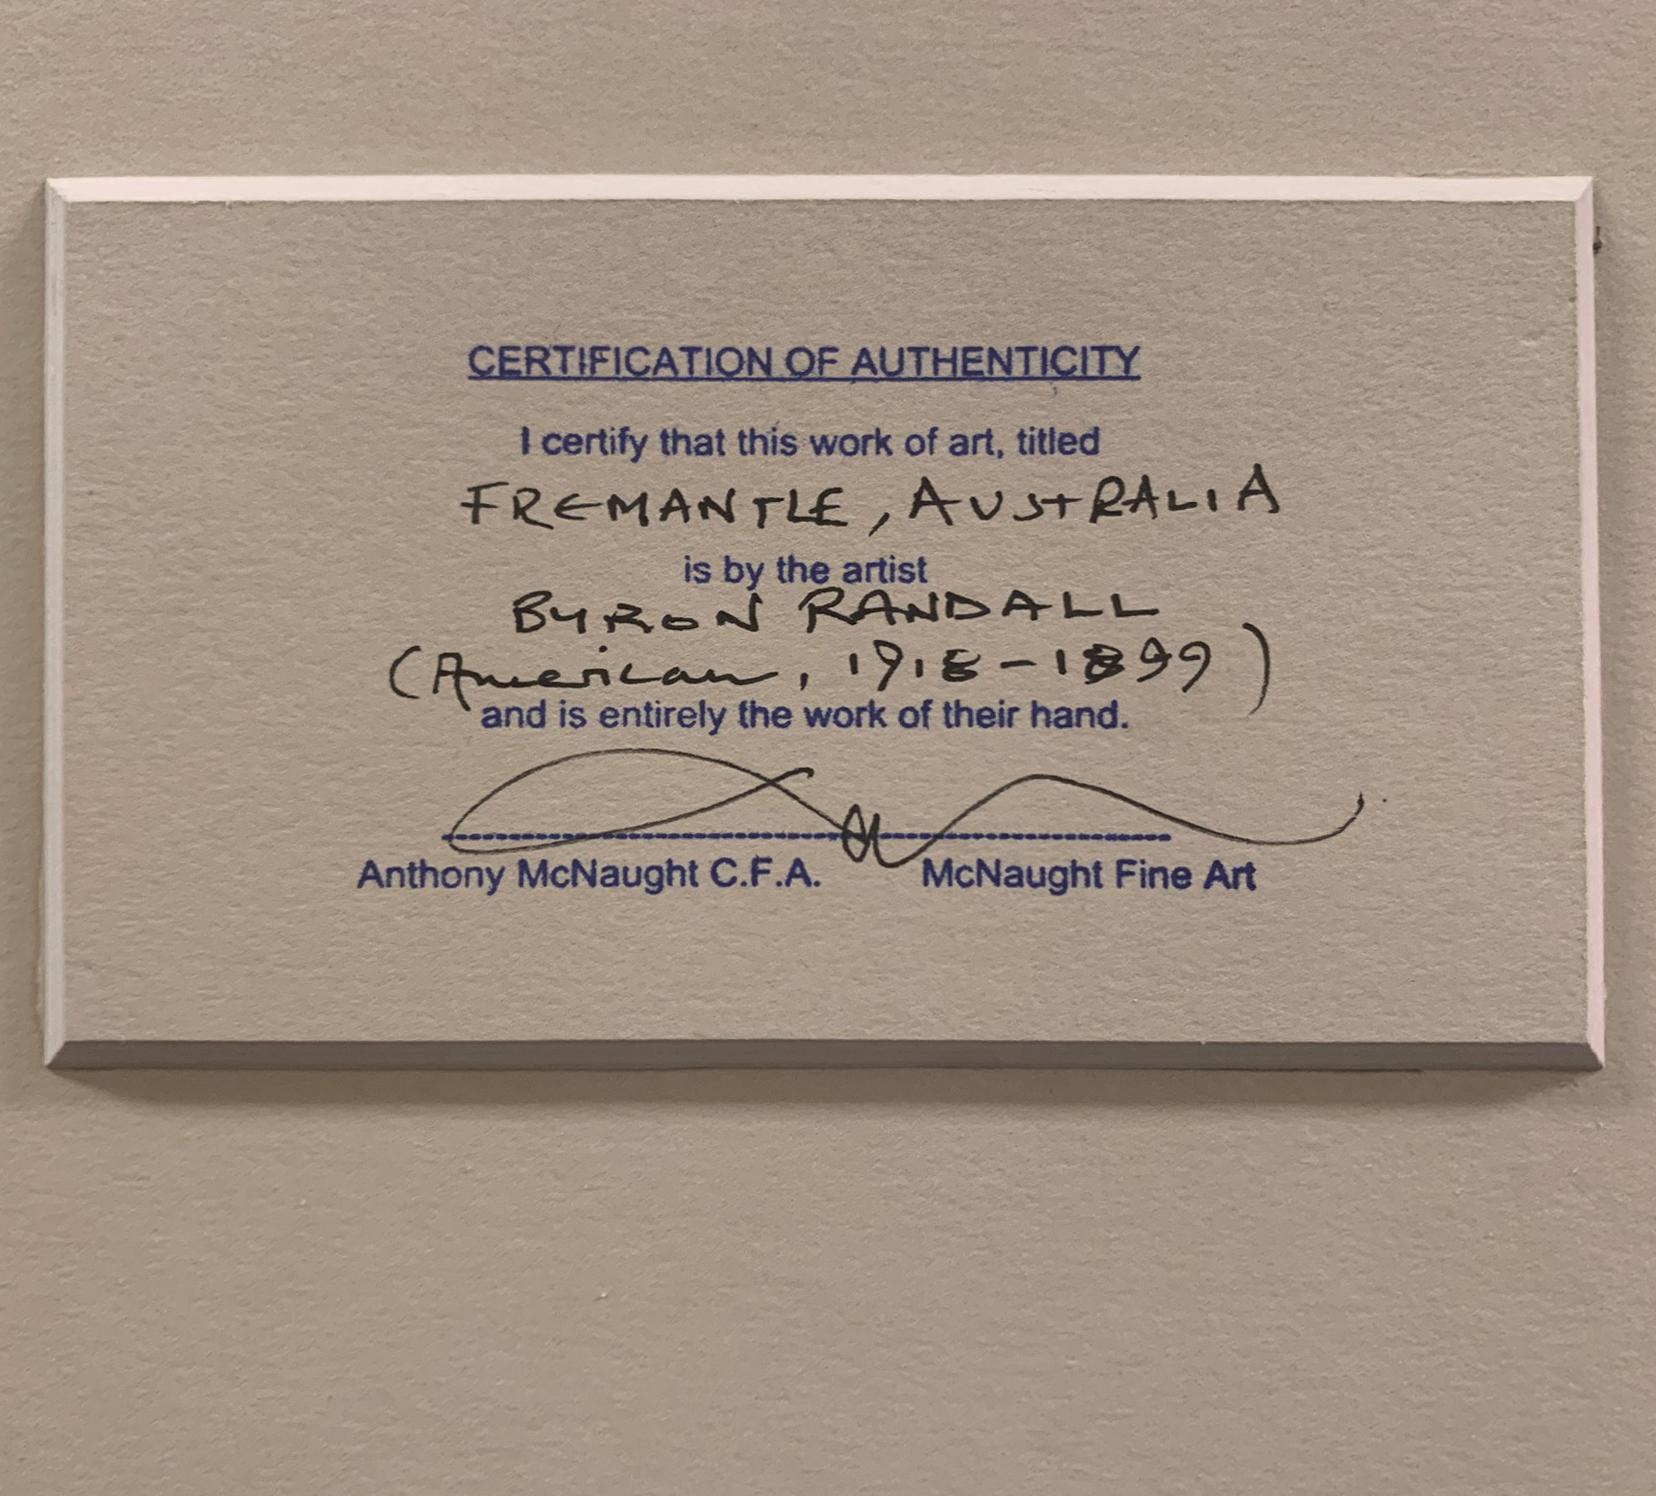 CERTIFICATION OF AUTHENTICITY
I certify that this work of art, titled
FREMANTLE, AUSTRALIA
is by the artist
BYRON RANDALL
(American, 1918-1899)
and is entirely the work of their hand.
Anthony McNaught C.F.A. McNaught Fine Art